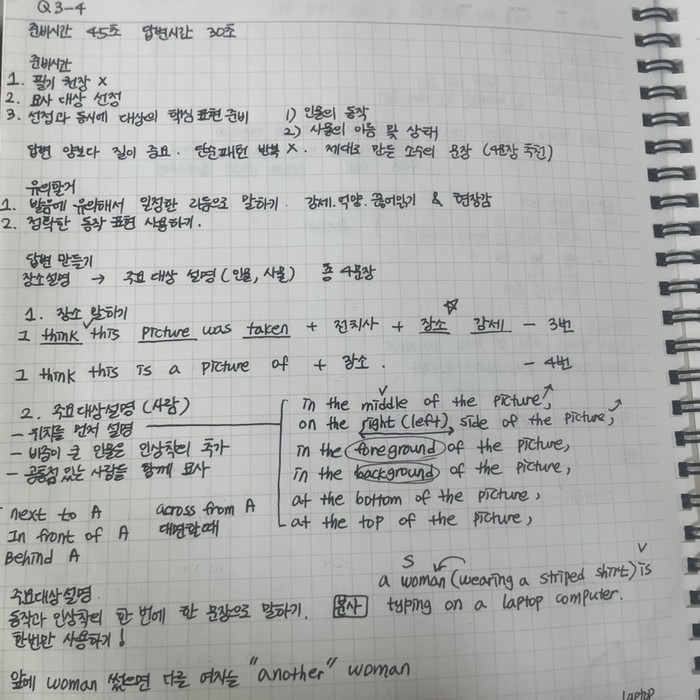 Q3-4
준비시간 45초 답변시간 30초
준비시간
1. 필기 권장 X
2. 묘사 대상 선정
3. 선정과 동시에 대상의 핵심 표현 준비 1) 인물의 동작
2) 사물의 이름 및 상태
답변 양보다 질이 중요. 단순패턴 반복 X. 제대로 만든 소수의 문장 (4문장 추천)
유의할거
1. 발음에 유의해서 일정한 리듬으로 말하기. 강세.억양.끊어읽기 & 현장감
2. 정확한 동작 표현 사용하기.
답변 만들기
장소설명 → 주요 대상 설명 (인물, 사물) 총 4문장
1. 장소 말하기
I think this picture was taken + 전치사 + 장소 강세 - 3번
I think this is a picture of + 장소. - 4번
2. 주요대상설명 (사람)
- 위치를 먼저 설명
- 비중이 큰 인물은 인상착의 추가
- 공통점 있는 사람들 함께 묘사
in the middle of the picture,
on the right (left) side of the picture,
in the foreground of the picture,
in the background of the picture,
at the bottom of the picture,
at the top of the picture,
next to A across from A
In front of A 대면할때
Behind A
주요대상설명.
동작과 인상착의 한 번에 한 문장으로 말하기.
한번만 사용하기!
S V
a woman (wearing a striped shirt) is
분사 typing on a laptop computer.
앞에 woman 썼으면 다른 여자는 "another" woman
laptop